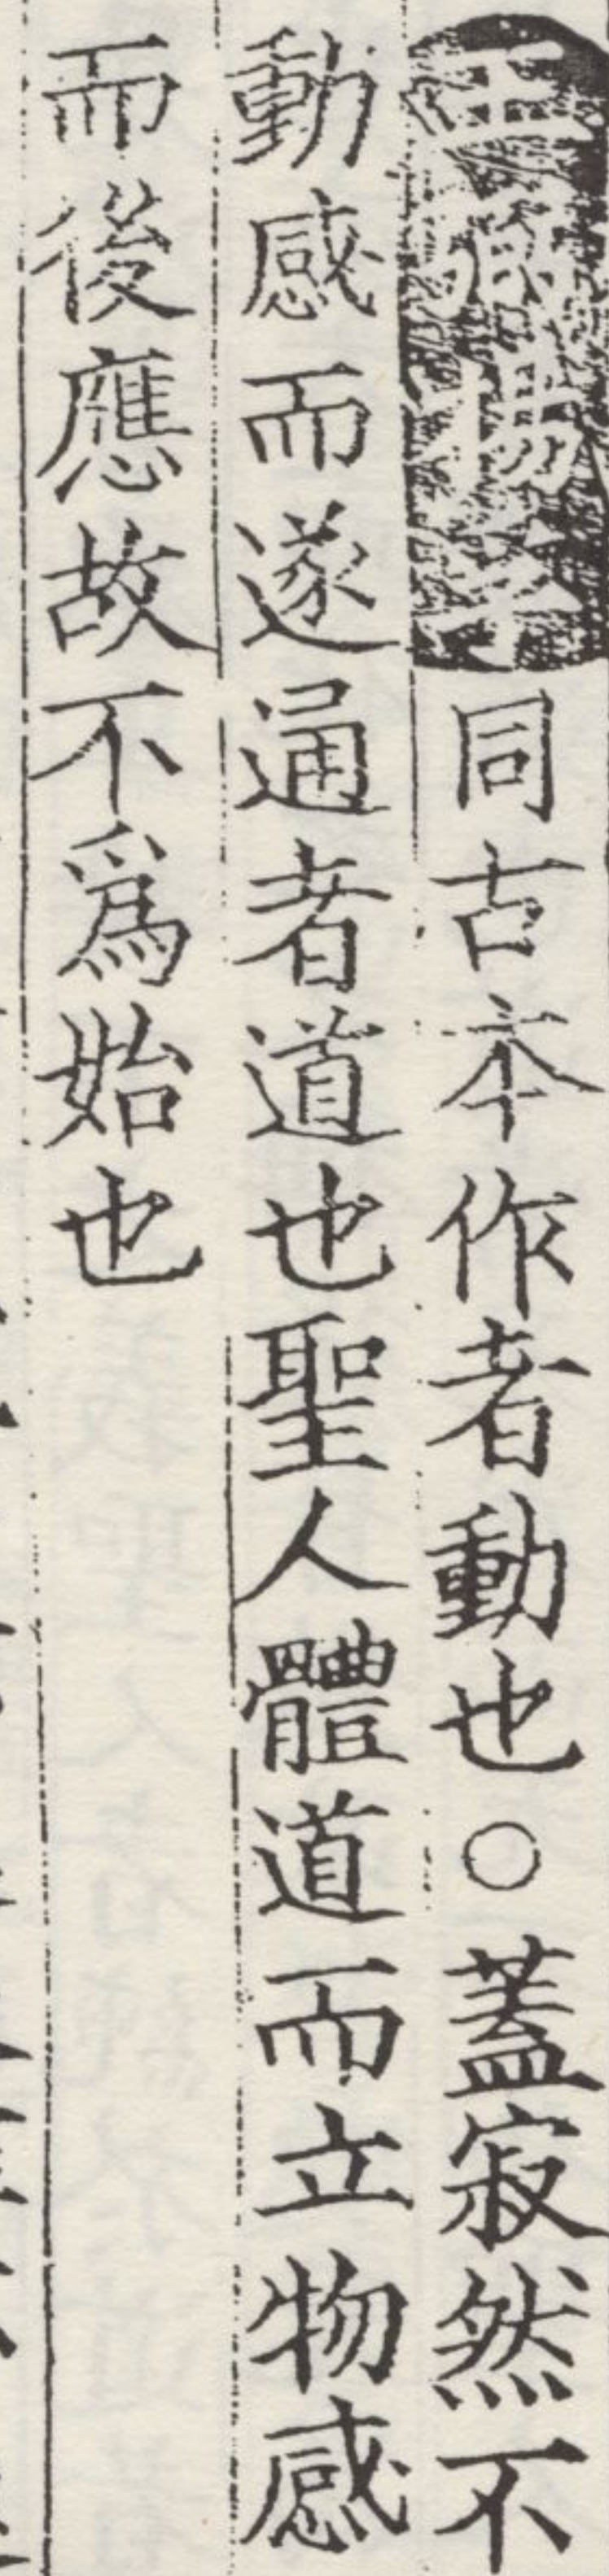 同古本作者動也○蓋寂然不
動感而遂通者道也聖人體道而立物感
而後應故不爲始也